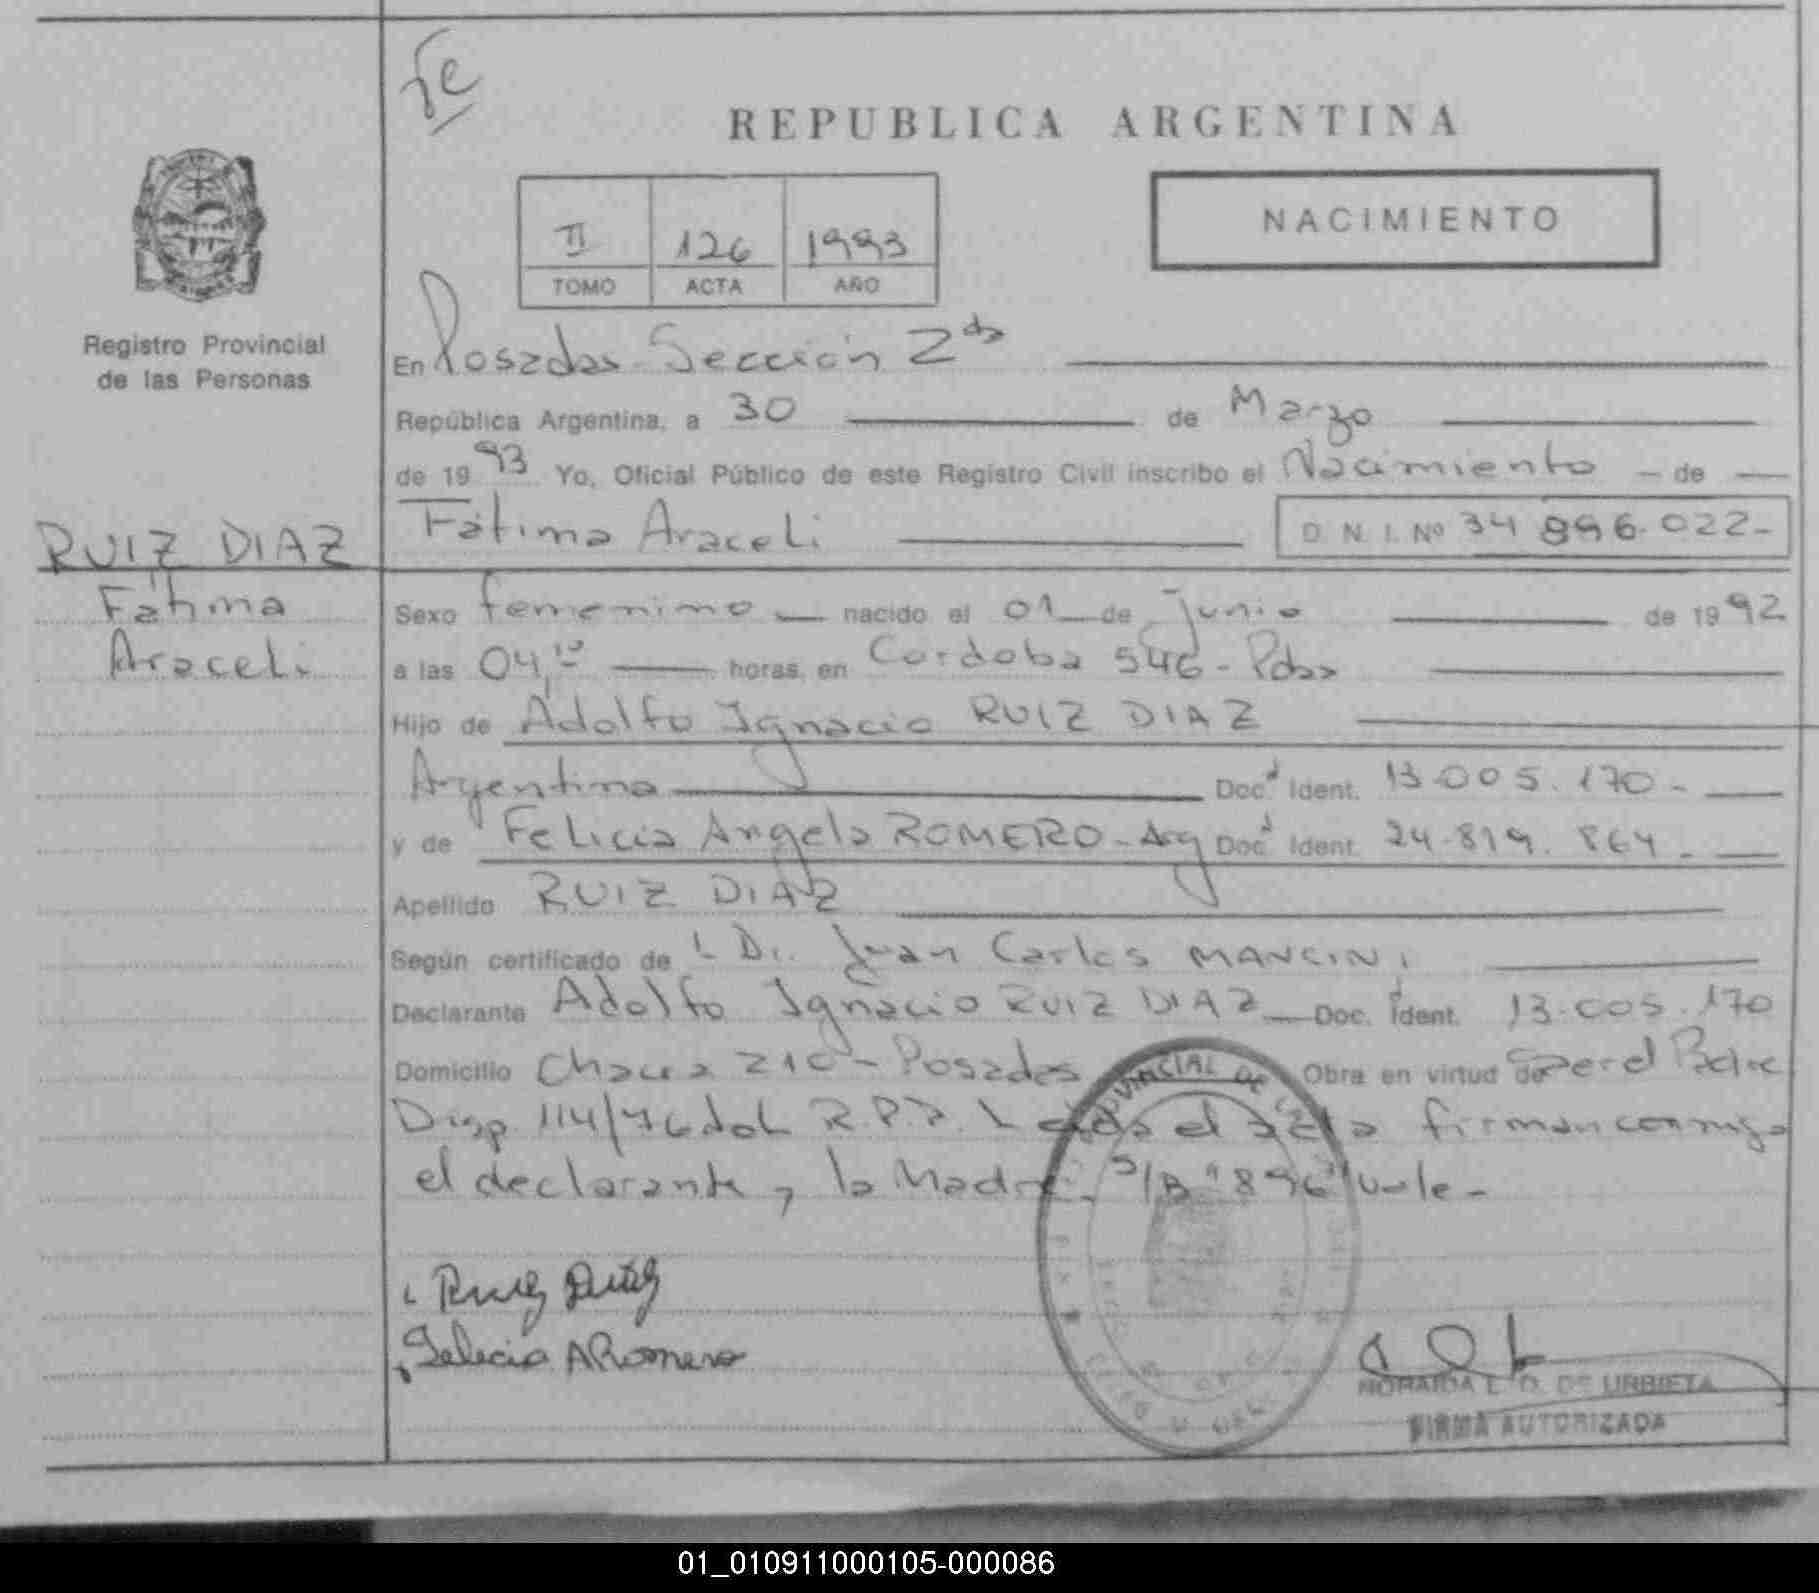 REPUBLICA ARGENTINA
NACIMIENTO
II 126 1993
TOMO ACTA AÑO
Registro Provincial
de las Personas
En Posadas - Sección 2da
República Argentina, a 30 de Marzo
de 1993 Yo, Oficial Público de este Registro Civil inscribo el Nacimiento - de
Fátima Araceli D. N. I. Nº 34 896.022-
RUIZ DIAZ
Fátima
Araceli
Sexo femenino nacido el 01 de junio de 1992
a las 04,10 horas, en Cordoba 546 - Pdas
Hijo de Adolfo Ignacio RUIZ DIAZ
Argentina Doc.d Ident. 13.005.170.-
y de Felicia Angela ROMERO - Arg Doc.d Ident. 24.819.864.-
Apellido RUIZ DIAZ
Según certificado de Dr. Juan Carlos MANCINI
Declarante Adolfo Ignacio RUIZ DIAZ Doc. Ident. 13.005.170
Domicilio Chacra 210 - Posadas Obra en virtud de Ser el Padre
Disp. 114/76 del R.P.P. Leida el acta firman conmigo
el declarante y la Madre. S/B "896" vale -
Ruiz Diaz
Felicia A Romero
NORAIDA E. O. DE URBIETA
FIRMA AUTORIZADA
01_010911000105-000086